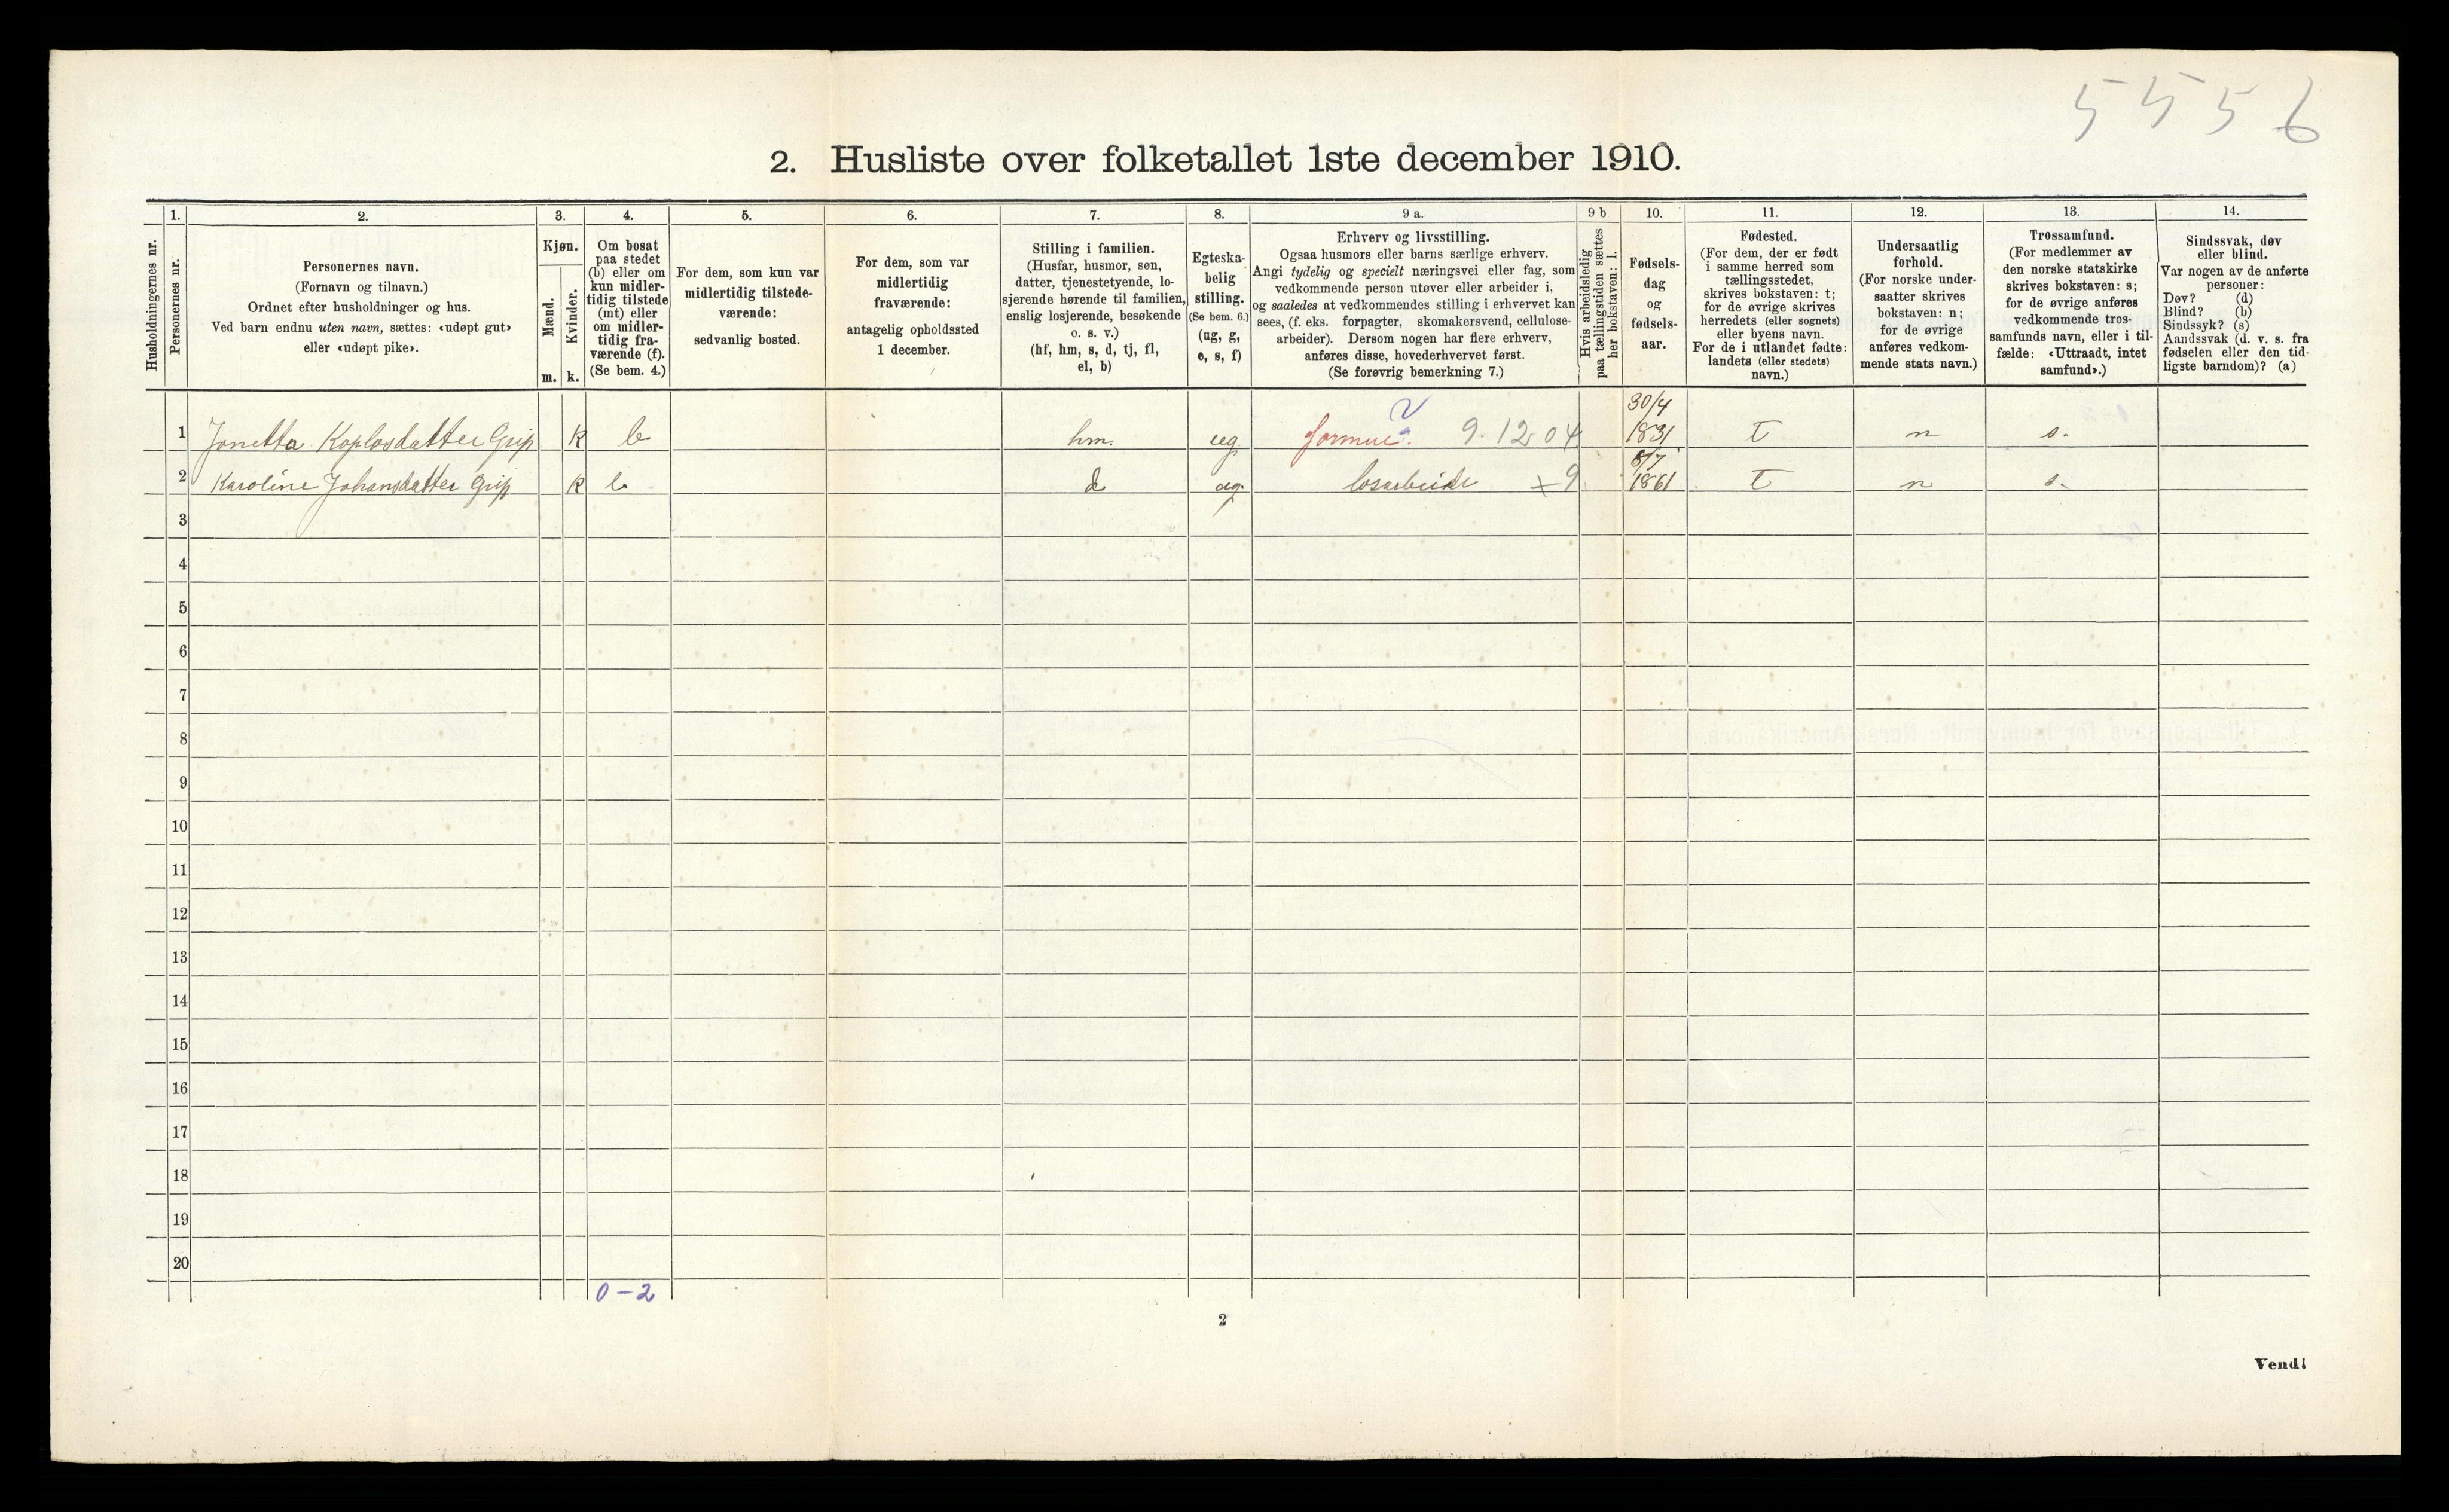 5556
2. Husliste over folketallet 1ste december 1910.
Husholdningernes nr.
1.
Personernes nr.
2.
Personernes navn.
(Fornavn og tilnavn.)
Ordnet efter husholdninger og hus.
Ved barn endnu uten navn, sættes: «udøpt gut»
eller «udøpt pike».
3.
Kjøn.
Mænd.
Kvinder.
m. k.
4.
Om bosat
paa stedet
(b) eller om
kun midler-
tidig tilstede
(mt) eller
om midler-
tidig fra-
værende (f).
(Se bem. 4.)
5.
For dem, som kun var
midlertidig tilstede-
værende:
sedvanlig bosted.
6.
For dem, som var
midlertidig
fraværende:
antagelig opholdssted
1 december.
7.
Stilling i familien.
(Husfar, husmor, søn,
datter, tjenestetyende, lo-
sjerende hørende til familien,
enslig losjerende, besøkende
o. s. v.)
(hf, hm, s, d, tj, fl,
el, b)
8.
Egteska-
belig
stilling.
(Se bem. 6.)
(ug, g,
e, s, f)
9 a.
Erhverv og livsstilling.
Ogsaa husmors eller barns særlige erhverv.
Angi tydelig og specielt næringsvei eller fag, som
vedkommende person utøver eller arbeider i,
og saaledes at vedkommendes stilling i erhvervet kan
sees, (f. eks. forpagter, skomakersvend, cellulose-
arbeider). Dersom nogen har flere erhverv,
anføres disse, hovederhvervet først.
(Se forøvrig bemerkning 7.)
9 b
Hvis arbeidsledig
paa tællingstiden sættes
her bokstaven: l.
10.
Fødsels-
dag
og
fødsels-
aar.
11.
Fødested.
(For dem, der er født
i samme herred som
tællingsstedet,
skrives bokstaven: t;
for de øvrige skrives
herredets (eller sognets)
eller byens navn.
For de i utlandet fødte:
landets (eller stedets)
navn.)
12.
Undersaatlig
forhold.
(For norske under-
saatter skrives
bokstaven: n;
for de øvrige
anføres vedkom-
mende stats navn.)
13.
Trossamfund.
(For medlemmer av
den norske statskirke
skrives bokstaven: s;
for de øvrige anføres
vedkommende tros-
samfunds navn, eller i til-
fælde: «Uttraadt, intet
samfund».)
14.
Sindssvak, døv
eller blind.
Var nogen av de anførte
personer:
Døv? (d)
Blind? (b)
Sindssyk? (s)
Aandssvak (d. v. s. fra
fødselen eller den tid-
ligste barndom)? (a)
30/4
1 Jonetta Koplosdatter Grip k b hm. ug. formue. 9.12 04 1831 t n s.
8/7
2 Karoline Johansdatter Grip k b d ug. løsarbeide × 9 1861 t n s.
3
4
5
6
7
8
9
10
11
12
13
14
15
16
17
18
19
20
0-2
2
Vend!